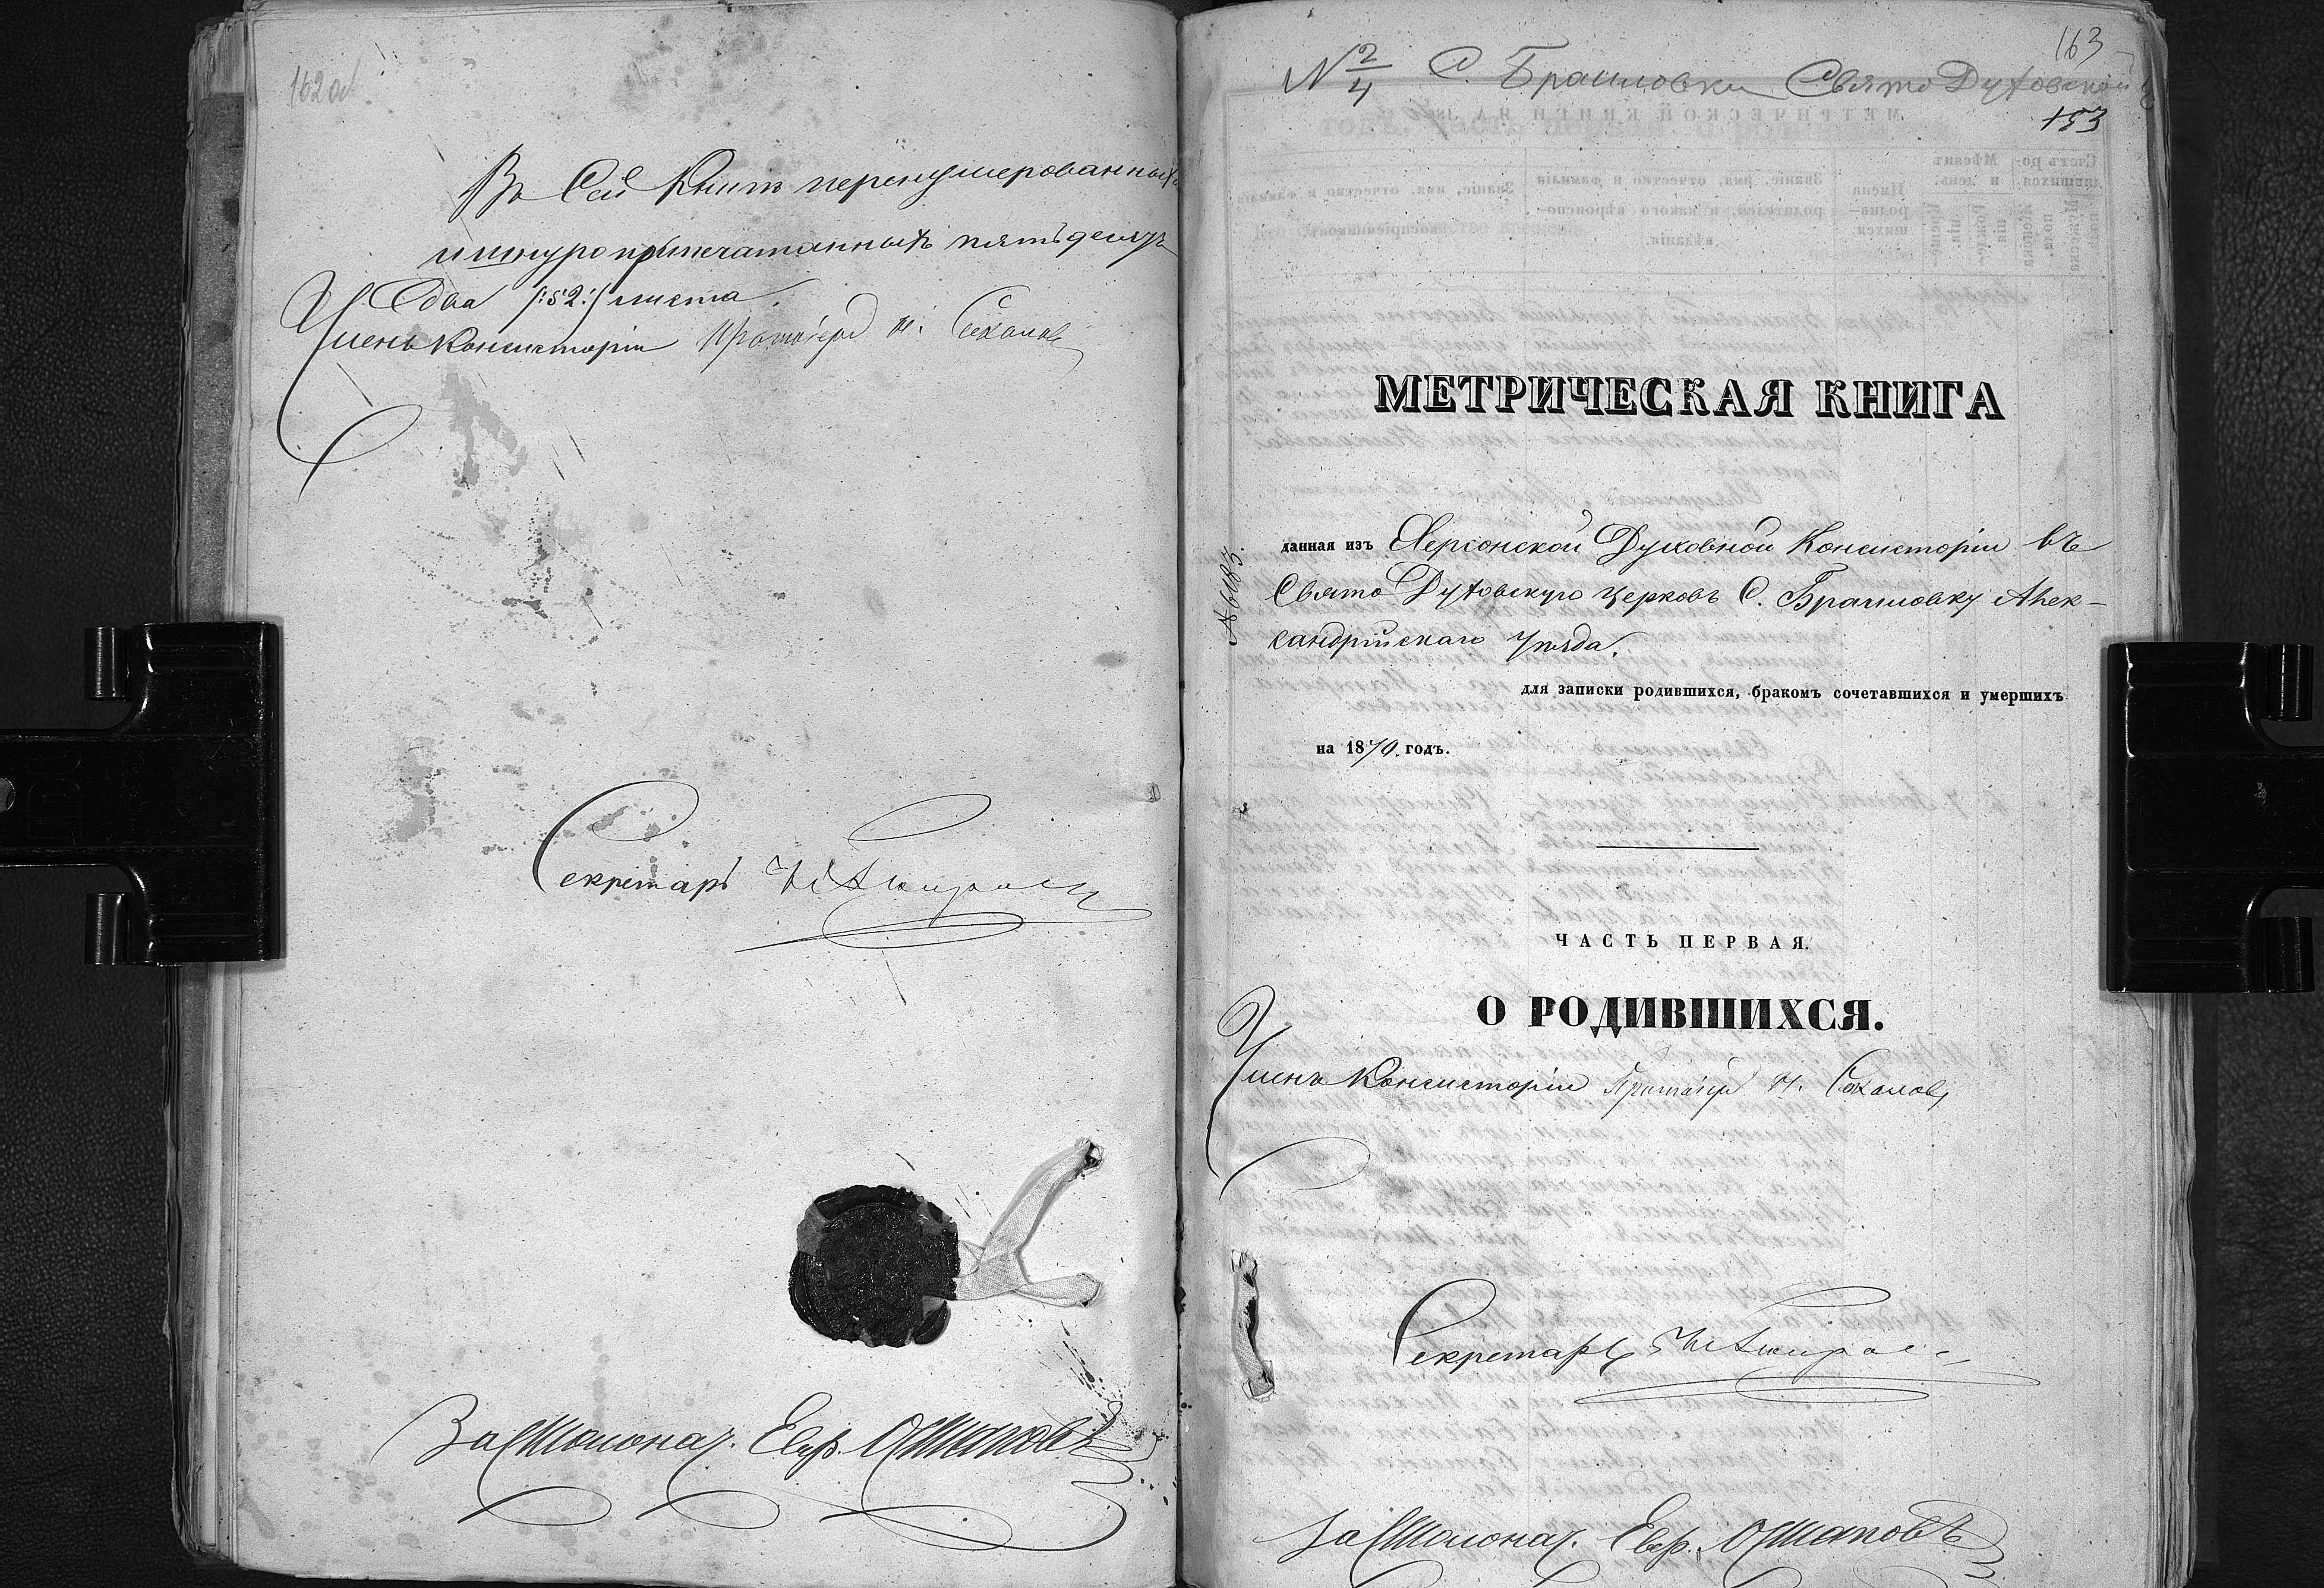 162об
Въ Сей Книгѣ перенумерованныхъ
шнуроприпечатанныхъ пятьдесятъ
два /:52:/ листа.
Членъ Консисторіи Протоіерей Н. Соколовъ
Секретарь
За Столонач. Евр. Остаповъ
163
№ 2/4 С. Браиловки Свято Духовской
153
МЕТРИЧЕСКАЯ КНИГА
№ 6183.
данная изъ Херсонской Духовной Консисторіи въ
Свято Духовскую церковь С. Браиловку Алек-
сандрійскаго уѣзда.
для записки родившихся, бракомъ сочетавшихся и умершихъ
на 1870. годъ.
ЧАСТЬ ПЕРВАЯ.
О РОДИВШИХСЯ.
Членъ Консисторіи Протоіерей Н. Соколовъ
Секретарь
За Столонач. Евр. Остаповъ